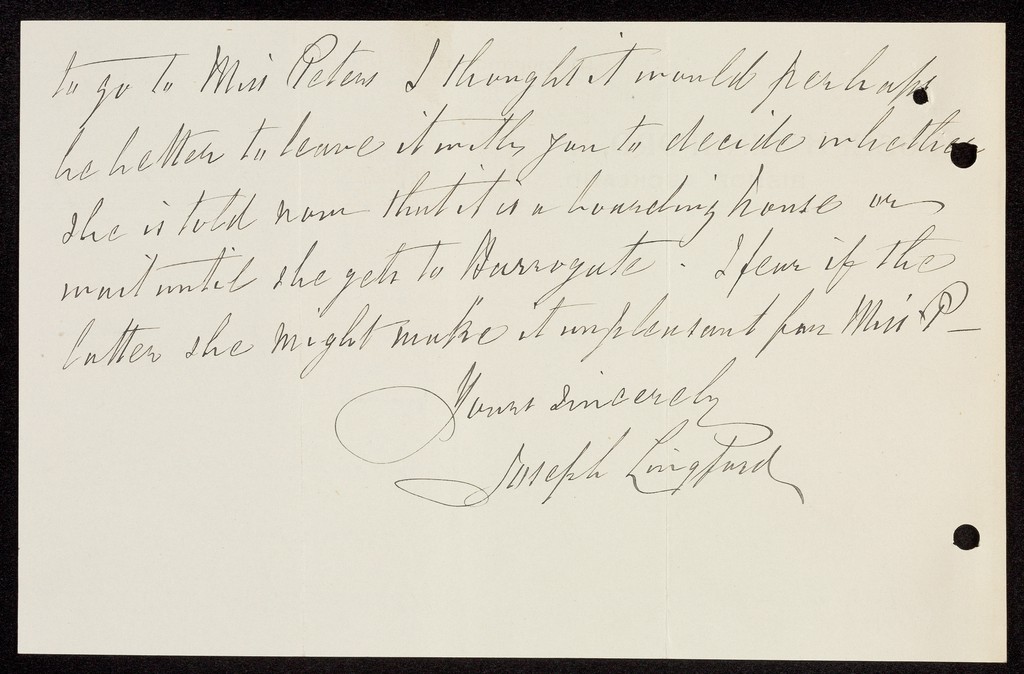 to go to Miss Peters I thought it would perhaps
be better to leave it with you to decide whether
she is told now that it is a boarding house or
wait until she gets to Harrogate. I fear if the
latter she might make it unpleasant for Miss P—
Yours sincerely
Joseph Lingford